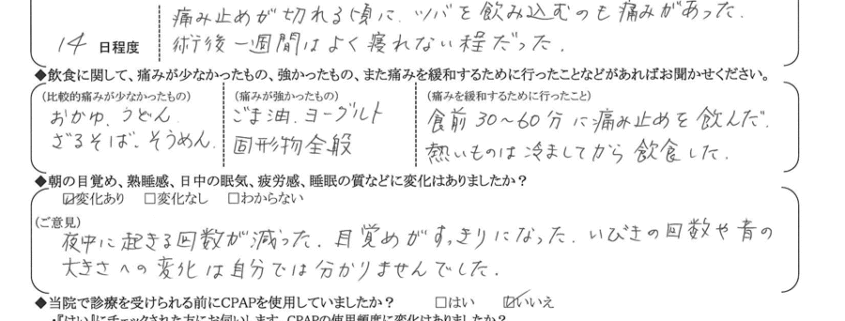 痛み止めが切れる頃に、ツバを飲み込むのも痛みがあった.
14 日程度
術後一週間はよく寝れない程だった.
◆飲食に関して、痛みが少なかったもの、強かったもの、また痛みを緩和するために行ったことなどがあればお聞かせください。
(比較的痛みが少なかったもの) (痛みが強かったもの) (痛みを緩和するために行ったこと)
おかゆ、うどん、 ごま油、ヨーグルト 食前30〜60分に痛み止めを飲んだ.
ざるそば、そうめん. 固形物全般 熱いものは冷ましてから飲食した.
◆朝の目覚め、熟睡感、日中の眠気、疲労感、睡眠の質などに変化はありましたか？
☑変化あり □変化なし □わからない
(ご意見)
夜中に起きる回数が減った. 目覚めがすっきりになった. いびきの回数や音の
大きさへの変化は自分では分かりませんでした.
◆当院で診療を受けられる前にCPAPを使用していましたか？ □はい ☑いいえ
・『はい』にチェックされた方にお伺いします。CPAPの使用頻度に変化はありましたか？